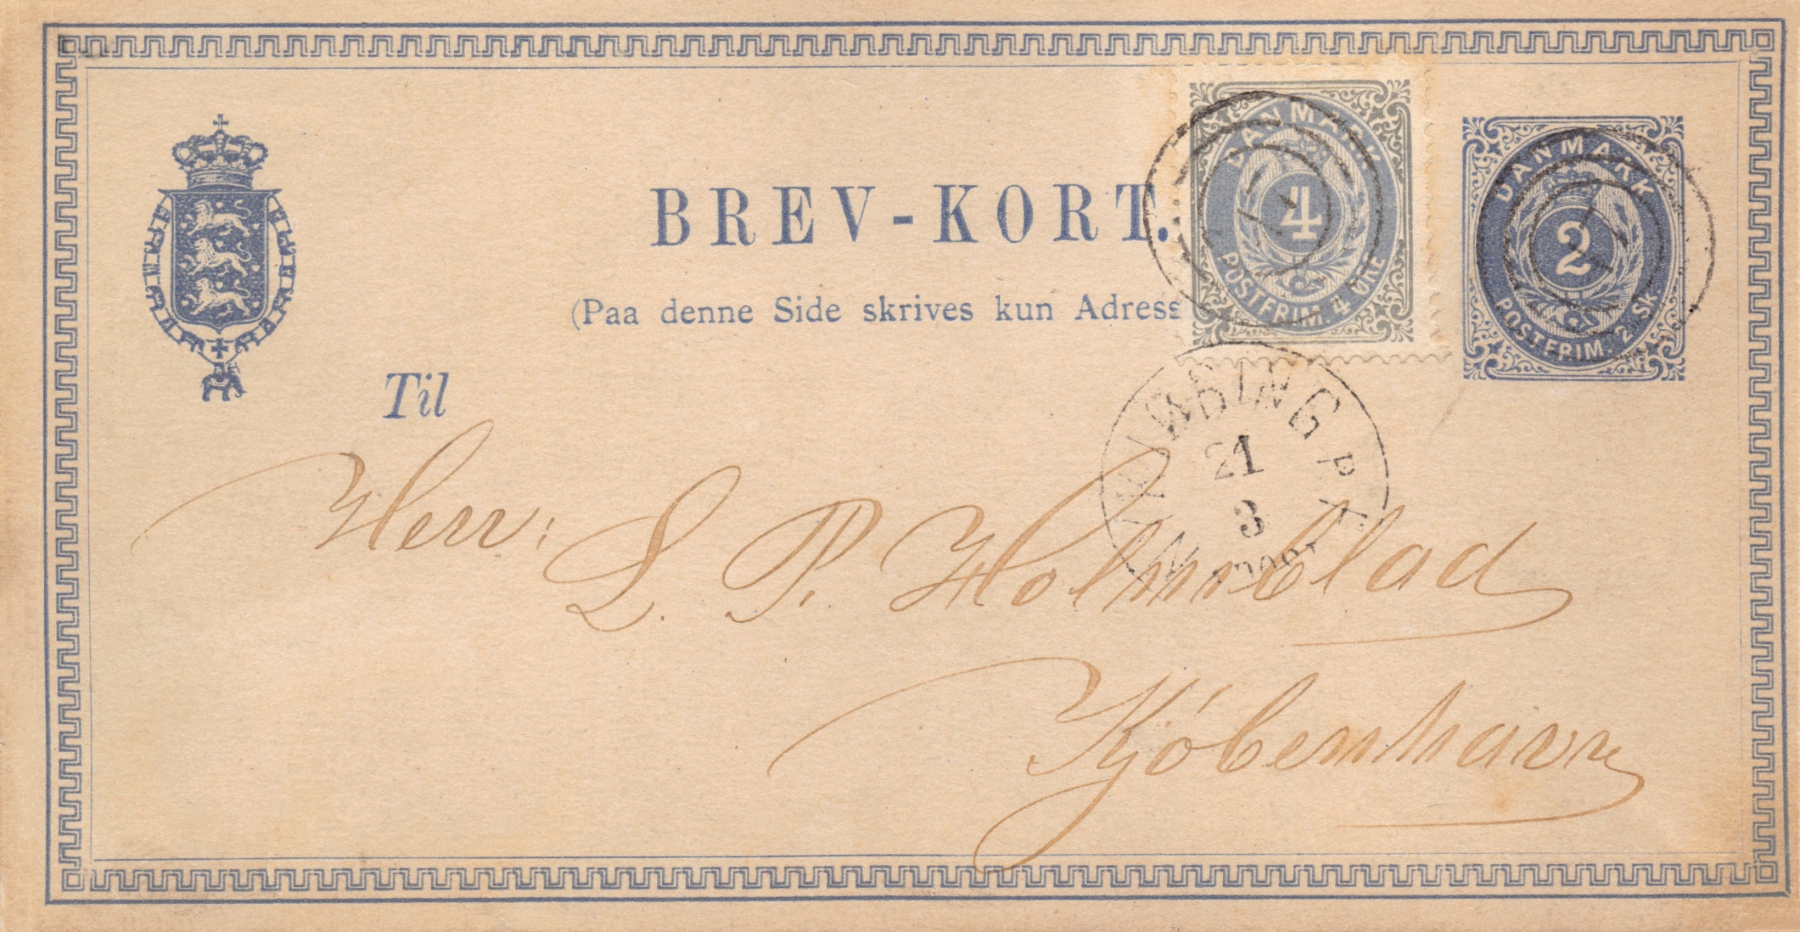 BREV-KORT.
(Paa denne Side skrives kun Adress
Til
Herr: L. P. Holmblad
Kjøbenhavn
DANMARK
4
POSTFRIM. 4 ØRE
DANMARK
2
POSTFRIM. 2 SK
21
3